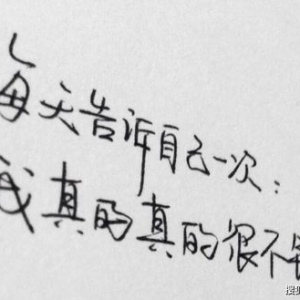 每天告诉自己一次:
我真的真的很不